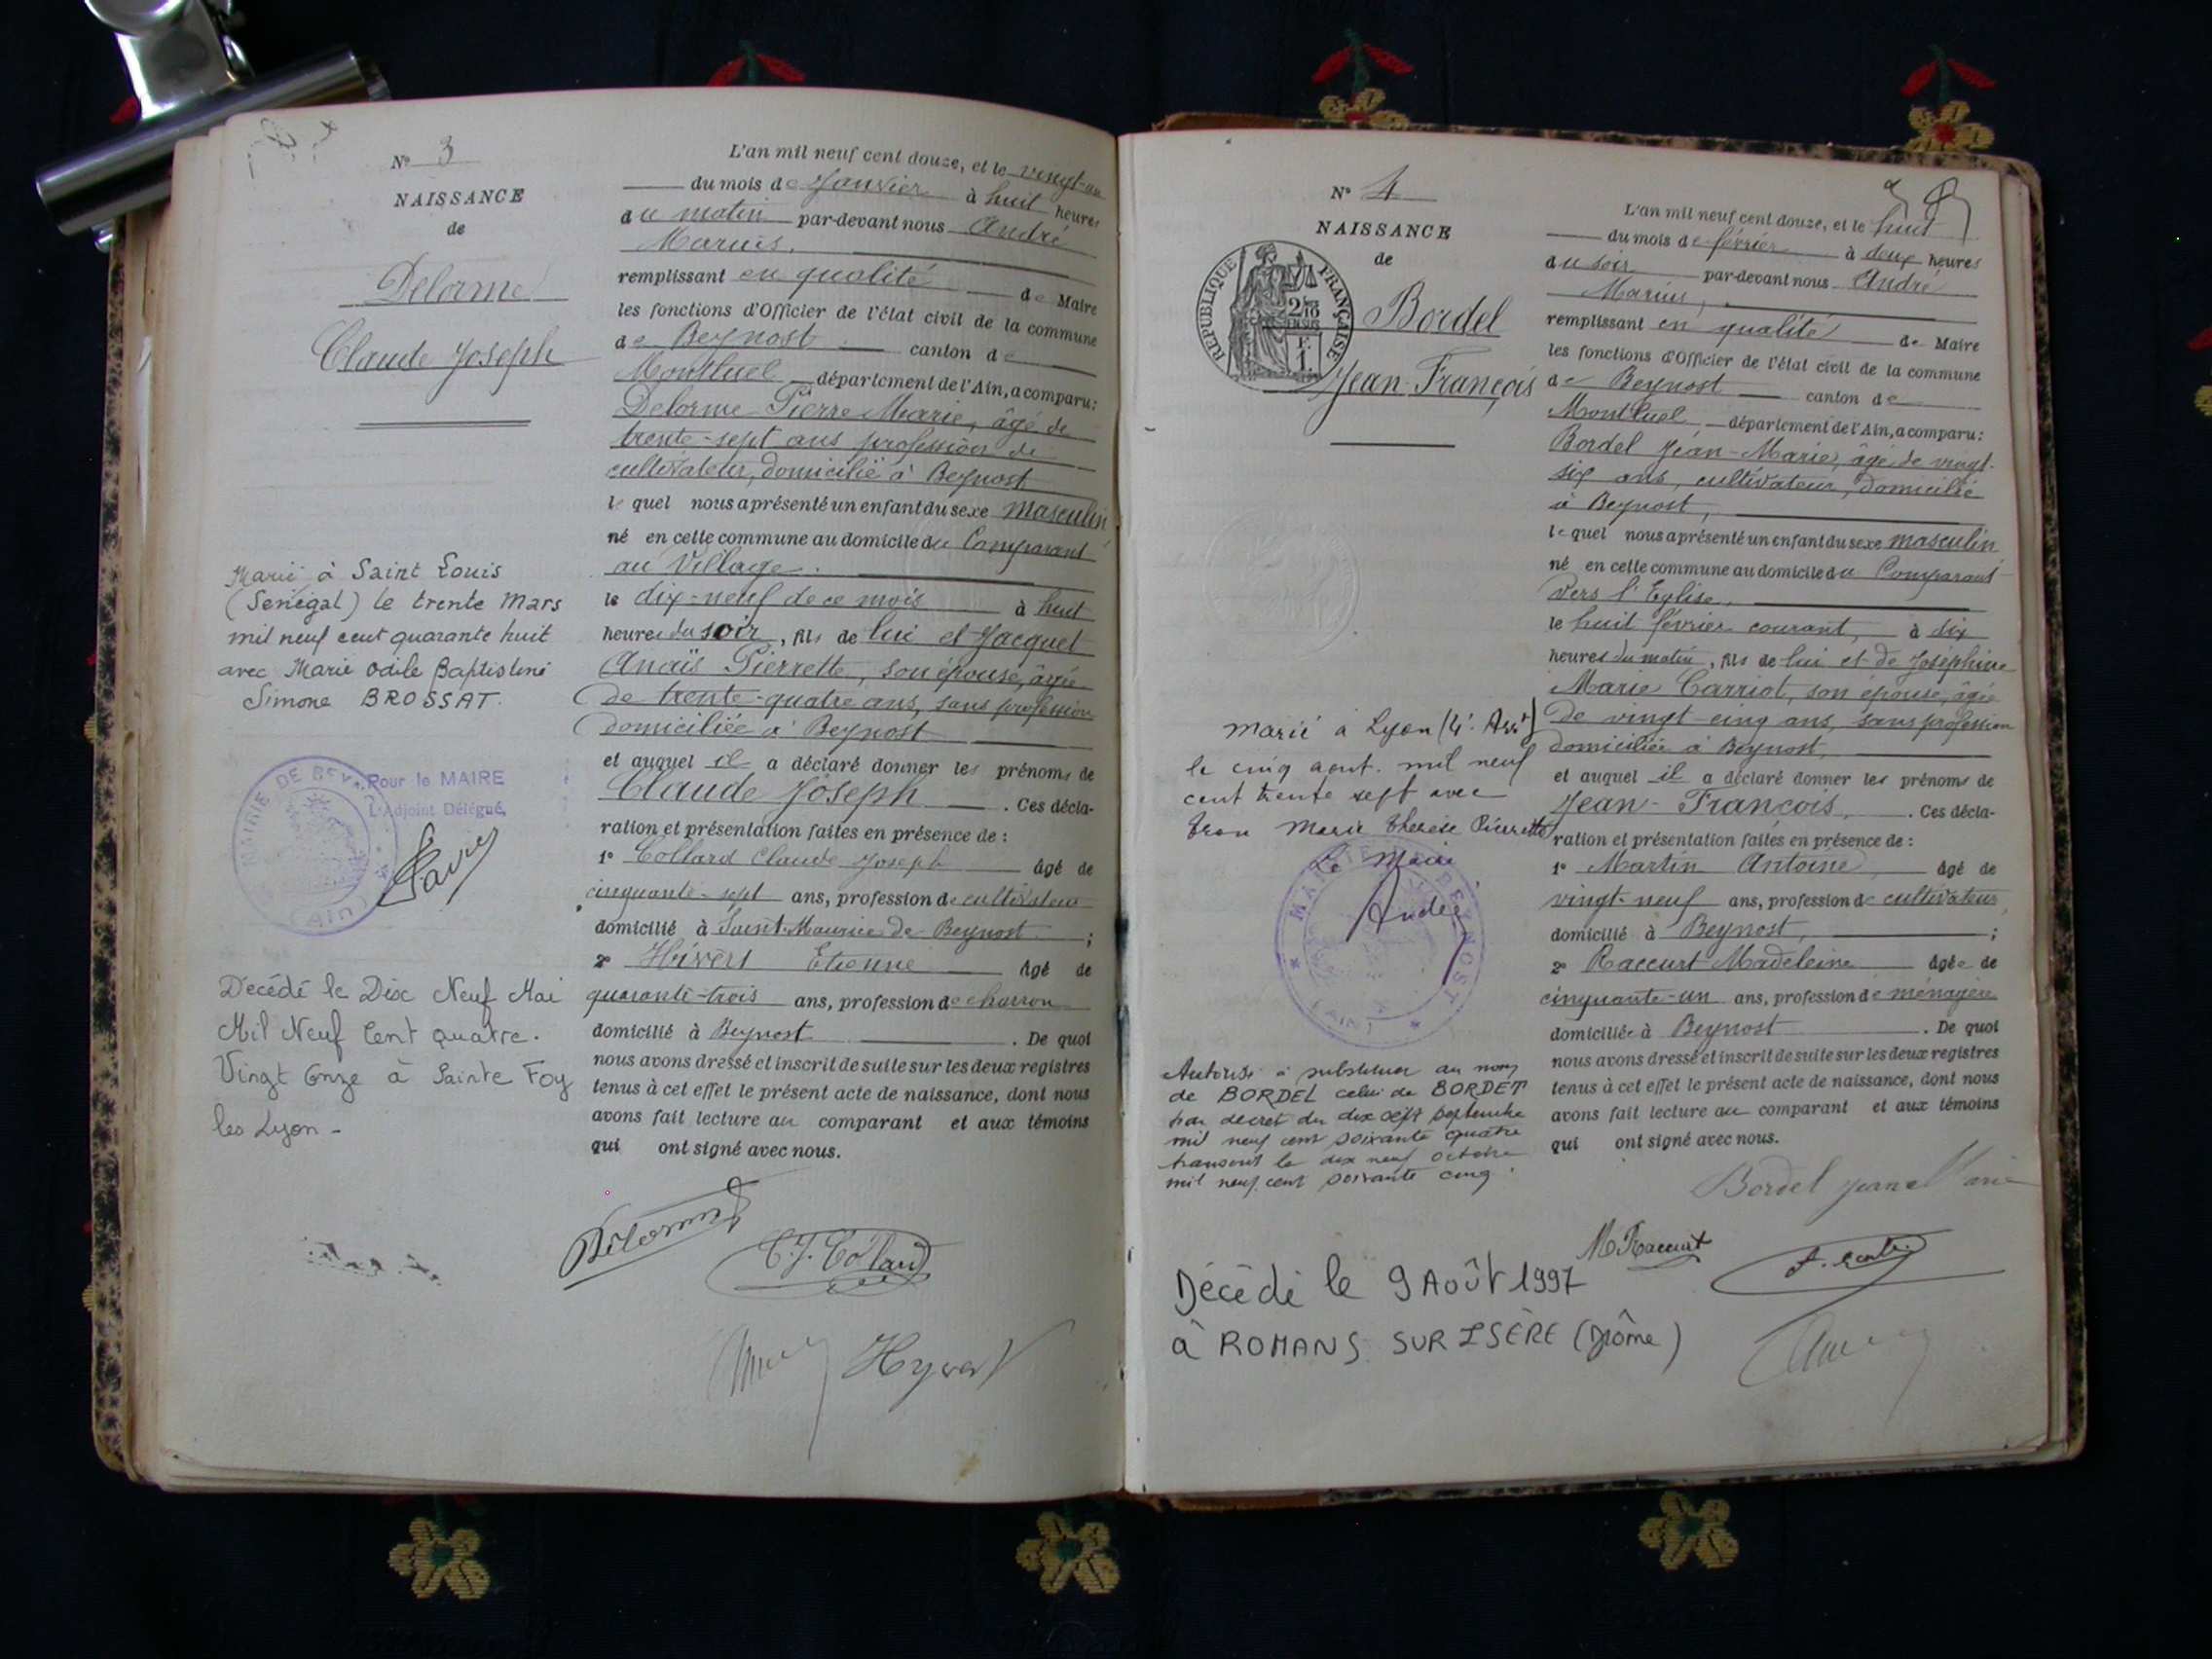 N° 3
NAISSANCE
de
Delorme
Claude Joseph
Marié à Saint Louis
(Sénégal) le trente Mars
mil neuf cent quarante huit
avec Marie Odile Baptistine
Simone BROSSAT.
MAIRIE DE BEY
(AIN)
Pour le MAIRE
L'Adjoint Délégué,
Favre
Décédé le Dix Neuf Mai
Mil Neuf Cent quatre.
Vingt Onze à Sainte Foy
les Lyon -
L'an mil neuf cent douze, et le vingt-un
du mois de Janvier à huit heures
du matin par-devant nous André
Marius,
remplissant en qualité de Maire
les fonctions d'Officier de l'état civil de la commune
de Beynost canton de
Montluel département de l'Ain, a comparu:
Delorme Pierre Marie, âgé de
trente-sept ans profession de
cultivateur, domicilié à Beynost
lequel nous a présenté un enfant du sexe masculin
né en cette commune au domicile du Comparant
au Village.
le dix-neuf de ce mois à huit
heures du soir, fils de lui et Jacquet
Anaïs Pierrette, son épouse, âgée
de trente-quatre ans, sans profession
domiciliée à Beynost
et auquel il a déclaré donner les prénoms de
Claude Joseph. Ces décla-
ration et présentation faites en présence de :
1° Collard Claude Joseph âgé de
cinquante-sept ans, profession de cultivateur
domicilié à Saint-Maurice de Beynost ;
2° Hivert Etienne âgé de
quarante-trois ans, profession de charron
domicilié à Beynost. De quoi
nous avons dressé et inscrit de suite sur les deux registres
tenus à cet effet le présent acte de naissance, dont nous
avons fait lecture au comparant et aux témoins
qui ont signé avec nous.
Delorme
C. J. Collard
Hyvert
N° 4
NAISSANCE
de
RÉPUBLIQUE FRANÇAISE
Bordel
Jean-François
marié à Lyon (4e Arrt)
le cinq aout. mil neuf
cent trente sept avec
Marie Thérèse Pierrette
Le Maire
André
MAIRIE DE BEYNOST
(AIN)
Autorisé à substituer au nom
de BORDEL celui de BORDET
par décret du dix sept septembre
mil neuf cent soixante quatre
transcrit le dix neuf octobre
mil neuf cent soixante cinq.
Décédé le 9 Août 1997
à ROMANS SUR ISÈRE (Drôme)
L'an mil neuf cent douze, et le huit
du mois de février à deux heures
du soir par-devant nous André
Marius,
remplissant en qualité de Maire
les fonctions d'Officier de l'état civil de la commune
de Beynost canton de
Montluel département de l'Ain, a comparu:
Bordel Jean-Marie, âgé de vingt-
six ans, cultivateur, domicilié
à Beynost,
lequel nous a présenté un enfant du sexe masculin
né en cette commune au domicile du Comparant
Vers l'Eglise,
le huit février courant, à dix
heures du matin, fils de lui et de Joséphine
Marie Carriot, son épouse, âgée
de vingt-cinq ans, sans profession
domiciliée à Beynost,
et auquel il a déclaré donner les prénoms de
Jean-François. Ces décla-
ration et présentation faites en présence de :
1° Martin Antoine âgé de
vingt-neuf ans, profession de cultivateur,
domicilié à Beynost, ;
2° Raccurt Madeleine âgée de
cinquante-un ans, profession de ménagère
domiciliée à Beynost. De quoi
nous avons dressé et inscrit de suite sur les deux registres
tenus à cet effet le présent acte de naissance, dont nous
avons fait lecture au comparant et aux témoins
qui ont signé avec nous.
Bordel Jean Marie
M Raccurt